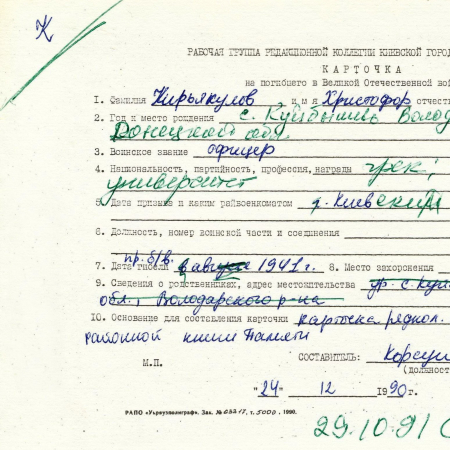 К
РАБОЧАЯ ГРУППА РЕДАКЦИОННОЙ КОЛЛЕГИИ КИЕВСКОЙ ГОРО
КАРТОЧКА
на погибшего в Великой Отечественной вой
1. Фамилия Кирьякулов имя Христофор отчеств
2. Год и место рождения с. Куйбышево Волод
Донецкой обл.
3. Воинское звание офицер
4. Национальность, партийность, профессия, награды грек;
университет
5. Дата призыва и каким райвоенкоматом г. Киевский
6. Должность, номер воинской части и соединения
7. Дата гибели пр. б/в. в августе 1941 г. 8. Место захоронения
9. Сведения о родственниках, адрес местожительства с. Куй
обл., Володарского р-на
10. Основание для составления карточки карточка редкол.
районной книги Памяти
М.П. СОСТАВИТЕЛЬ: Корсун
(должность
"24" 12 1990г.
РАПО «Укрвузполиграф». Зак. № 0321, т. 5000, 1990.
29.10.91